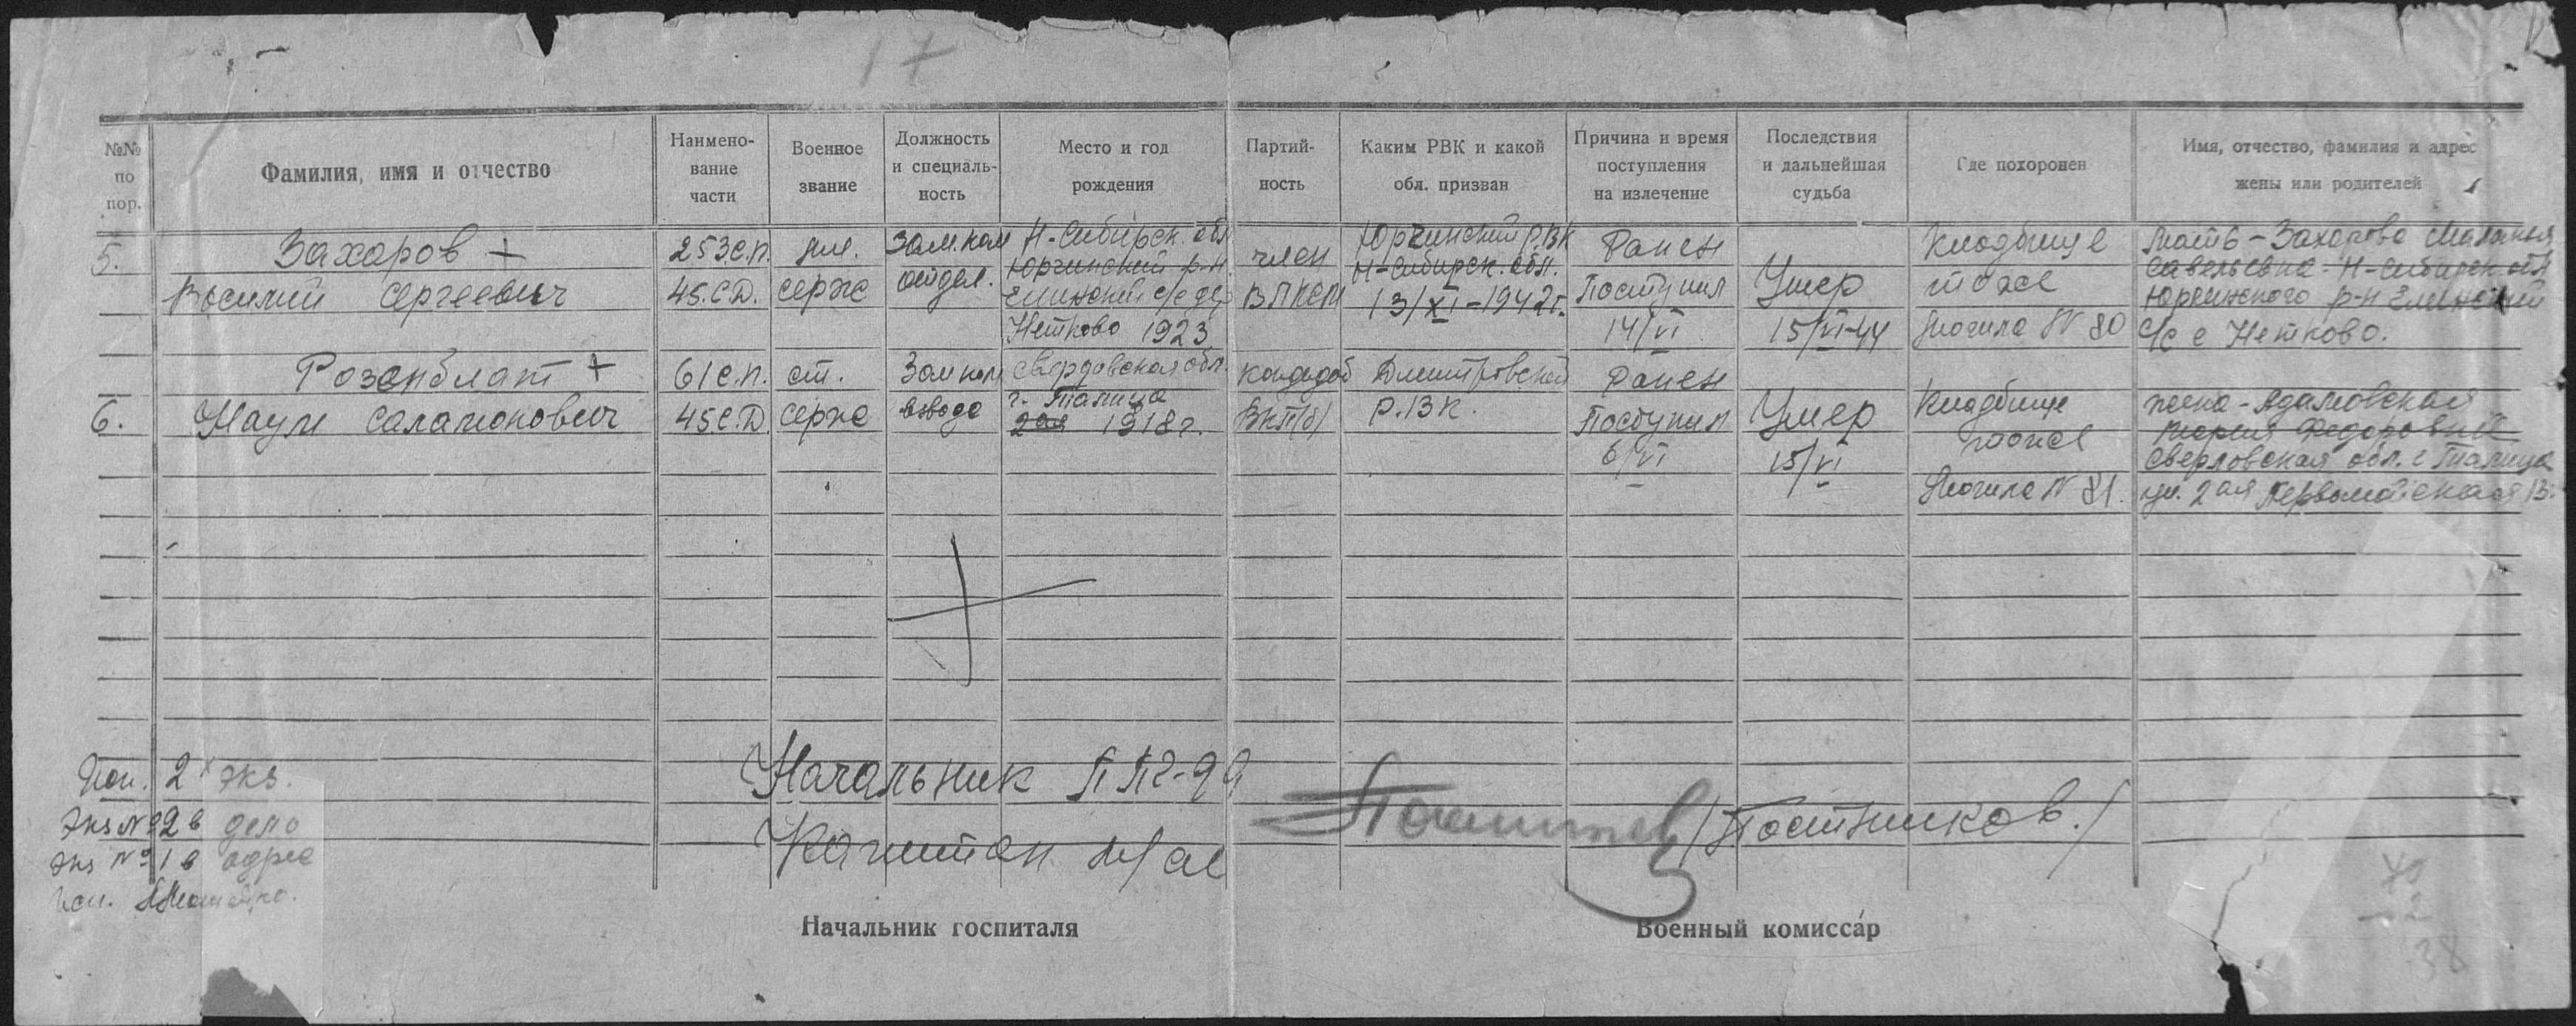 17
№№ по пор.
Фамилия, имя и отчество
Наимено-
вание
части
Военное
звание
Должность
и специаль-
ность
Место и год
рождения
Партий-
ность
Каким РВК и какой
обл. призван
Причина и время
поступления
на излечение
Последствия
и дальнейшая
судьба
Где похоронен
Имя, отчество, фамилия и адрес
жены или родителей
5.
Захаров +
Василий Сергеевич
253 с.п.
45 С.Д.
мл.
серж
Зам. ком
отдел.
Н-Сибирск. обл.
Юргинский р-н.
Елинский с/с дер
Нетково 1923
член
ВЛКСМ
Юргинский РВК
Н-Сибирск. обл.
13/XI-1942г.
Ранен
Поступил
14/VI
Умер
15/VI-44
Кладбище
тоже
Могила № 80
Мать - Захарова Маланья
Савельевна - Н-Сибирск обл
Юргинского р-н Елинский
с/с с Нетково.
6.
Розенблат +
Наум Саламонович
61 с.п.
45 С.Д.
ст.
серж
Зам ком
взвода
Свердовская обл.
г. Талица
1918 г.
кандидат
ВКП(б)
Дмитровский
Р.ВК.
Ранен
Поступил
6/VI
Умер
15/VI
Кладбище
тоже
Могила № 81.
жена - Адамовская
Мария Федоровна
Сверловская обл. г Талица
ул. 2ая Первомайская 13.
Исп. 2х экз.
Экз № 2 в дело
Экз № 1 в адрес
Исп.
Начальник ППГ-99
Капитан м/с
/Постников./
Начальник госпиталя
Военный комиссар
40
2
38